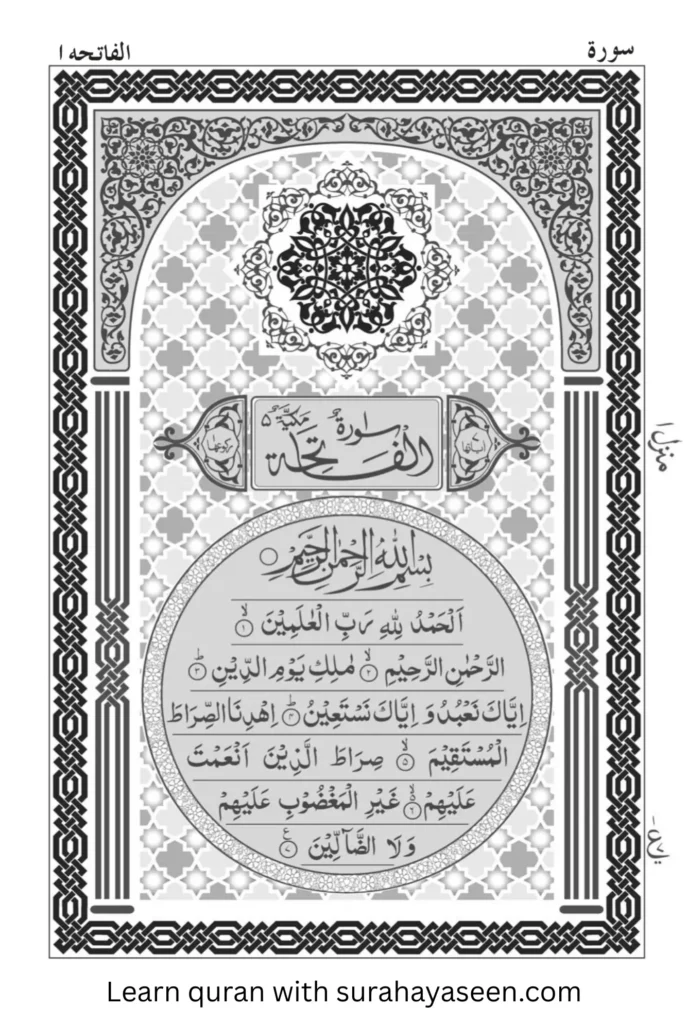 سورة
الفاتحه ١
سورة الفاتحة مكية ٥
اٰياتها ٧
ركوعها ١
منزل ١
بِسْمِ اللّٰهِ الرَّحْمٰنِ الرَّحِيْمِ
اَلْحَمْدُ لِلّٰهِ رَبِّ الْعٰلَمِيْنَ ۙ﴿١﴾
الرَّحْمٰنِ الرَّحِيْمِ ۙ﴿٢﴾ مٰلِكِ يَوْمِ الدِّيْنِ ؕ﴿٣﴾
اِيَّاكَ نَعْبُدُ وَ اِيَّاكَ نَسْتَعِيْنُ ؕ﴿٤﴾ اِهْدِنَا الصِّرَاطَ
الْمُسْتَقِيْمَ ۙ﴿٥﴾ صِرَاطَ الَّذِيْنَ اَنْعَمْتَ
عَلَيْهِمْ ۙ﴿٦﴾ غَيْرِ الْمَغْضُوْبِ عَلَيْهِمْ
وَلَا الضَّآلِّيْنَ ﴿٧﴾
Learn quran with surahayaseen.com